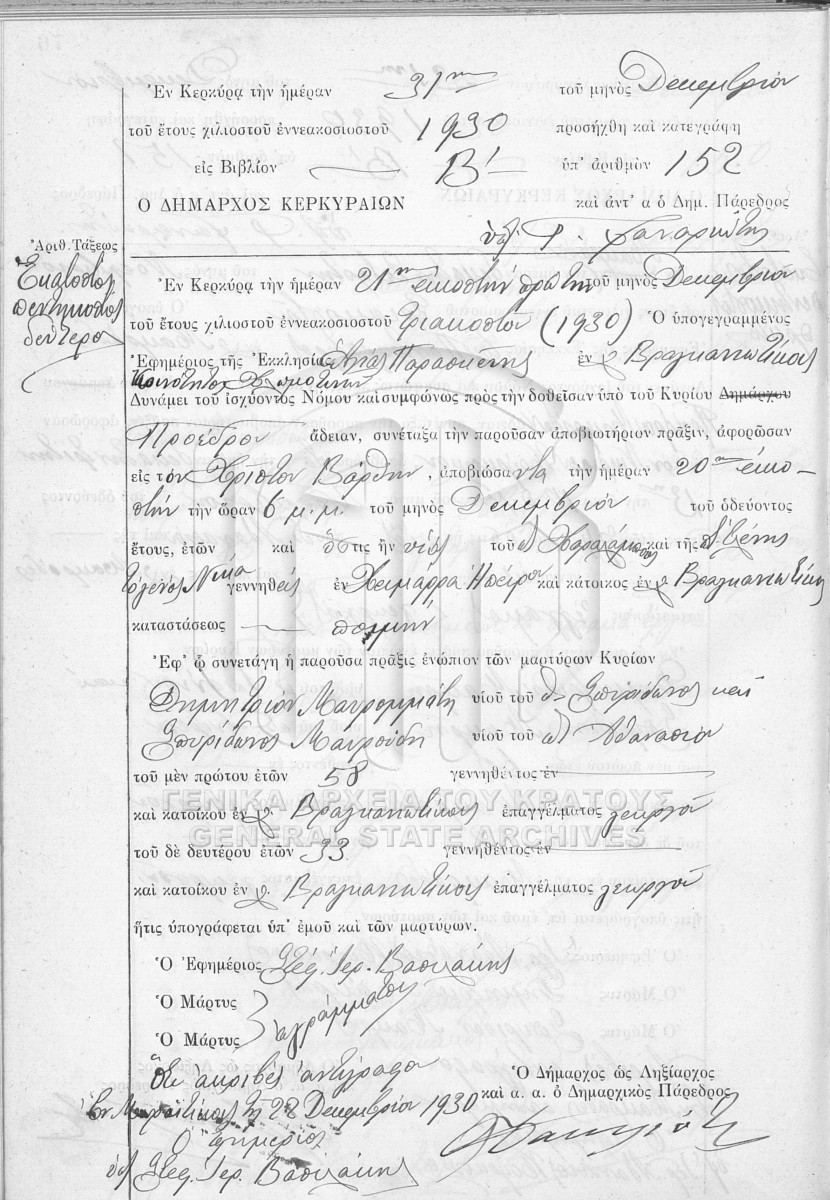 Ἐν Κερκύρᾳ τὴν ἡμέραν 31ην τοῦ μηνὸς Δεκεμβρίου
τοῦ ἔτους χιλιοστοῦ ἐννεακοσιοστοῦ 1930 προσήχθη καὶ κατεγράφη
εἰς Βιβλίον Β' ὑπ' ἀριθμὸν 152
Ο ΔΗΜΑΡΧΟΣ ΚΕΡΚΥΡΑΙΩΝ καὶ ἀντ' α ὁ Δημ. Πάρεδρος
Ἀριθ. Τάξεως
Ἑκατοστὸς
πεντηκοστὸς
δεύτερος
Ἐν Κερκύρᾳ τὴν ἡμέραν 21ην εἰκοστὴν πρώτην τοῦ μηνὸς Δεκεμβρίου
τοῦ ἔτους χιλιοστοῦ ἐννεακοσιοστοῦ τριακοστοῦ (1930) Ὁ ὑπογεγραμμένος
Ἐφημέριος τῆς Ἐκκλησίας Ἁγίας Παρασκευῆς ἐν χ. Βραγκανιωτίκοις
Δυνάμει τοῦ ἰσχύοντος Νόμου καὶ συμφώνως πρὸς τὴν δοθεῖσαν ὑπὸ τοῦ Κυρίου Δημάρχου
Προέδρου ἄδειαν, συνέταξα τὴν παροῦσαν ἀποβιωτήριον πρᾶξιν, ἀφορῶσαν
εἰς τὸν Χρῆστον Βάρθην, ἀποβιώσαντα τὴν ἡμέραν 20ην εἰκο-
στὴν τὴν ὥραν 6 μ.μ. τοῦ μηνὸς Δεκεμβρίου τοῦ ὁδεύοντος
ἔτους, ἐτῶν καὶ ὅστις ἦν υἱὸς τοῦ Χαραλάμπους καὶ τῆς Ἑλένης
τὸ γένος Νίκα γεννηθεὶς ἐν Χειμάρρᾳ Ἠπείρου καὶ κάτοικος ἐν χ. Βραγκανιωτίκοις
καταστάσεως ποιμὴν
Ἐφ' ᾧ συνετάγη ἡ παροῦσα πρᾶξις ἐνώπιον τῶν μαρτύρων Κυρίων
Δημητρίου Μαυρομμάτη υἱοῦ τοῦ Σπυρίδωνος καὶ
Σπυρίδωνος Μαυρούδη υἱοῦ τοῦ Ἀθανασίου
τοῦ μὲν πρώτου ἐτῶν 58 γεννηθέντος ἐν
καὶ κατοίκου ἐν χ. Βραγκανιωτίκοις ἐπαγγέλματος γεωργοῦ
ΓΕΝΙΚΑ ΑΡΧΕΙΑ ΤΟΥ ΚΡΑΤΟΥΣ
GENERAL STATE ARCHIVES
τοῦ δὲ δευτέρου ἐτῶν 33 γεννηθέντος ἐν
καὶ κατοίκου ἐν χ. Βραγκανιωτίκοις ἐπαγγέλματος γεωργοῦ
ἥτις ὑπογράφεται ὑπ' ἐμοῦ καὶ τῶν μαρτύρων.
Ὁ Ἐφημέριος Στέφ. Ἱερ. Βασιλάκης
Ὁ Μάρτυς
ἀγράμματοι
Ὁ Μάρτυς
Ὅτι ἀκριβὲς ἀντίγραφον
Ὁ Δήμαρχος ὡς Ληξίαρχος
καὶ α. α. ὁ Δημαρχικὸς Πάρεδρος
τῇ 22 Δεκεμβρίου 1930
Ὁ Ἐφημέριος
Στέφ. Ἱερ. Βασιλάκης